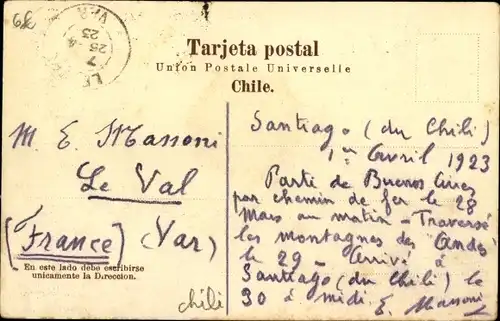 Tarjeta postal
Union Postale Universelle
Chile.
VAR
7 4
25
23
M. E. Massoni
Le Val
(France) (Var)
En este lado debe escribirse
unicamente la Direccion.
chili
Santiago (du Chili)
1er Avril 1923
Parti de Buenos Aires
par chemin de fer le 28
Mars au matin - Traversé
les montagnes des Andes
le 29 - Arrivé à
Santiago (du Chili) le
30 à midi. E. Massoni